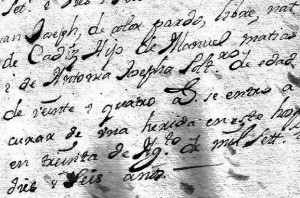 Set. i dies i
Juan Joseph, de color pardo, libre, nat
de Cadiz Hijo de Manuel matias
i de Antonia Josepha Solt.ro de edad
de veinte i quatro as. se entro a
curar de una herida en este hosp
en treinta de Ag.to de mil Sett.
dies i seis años